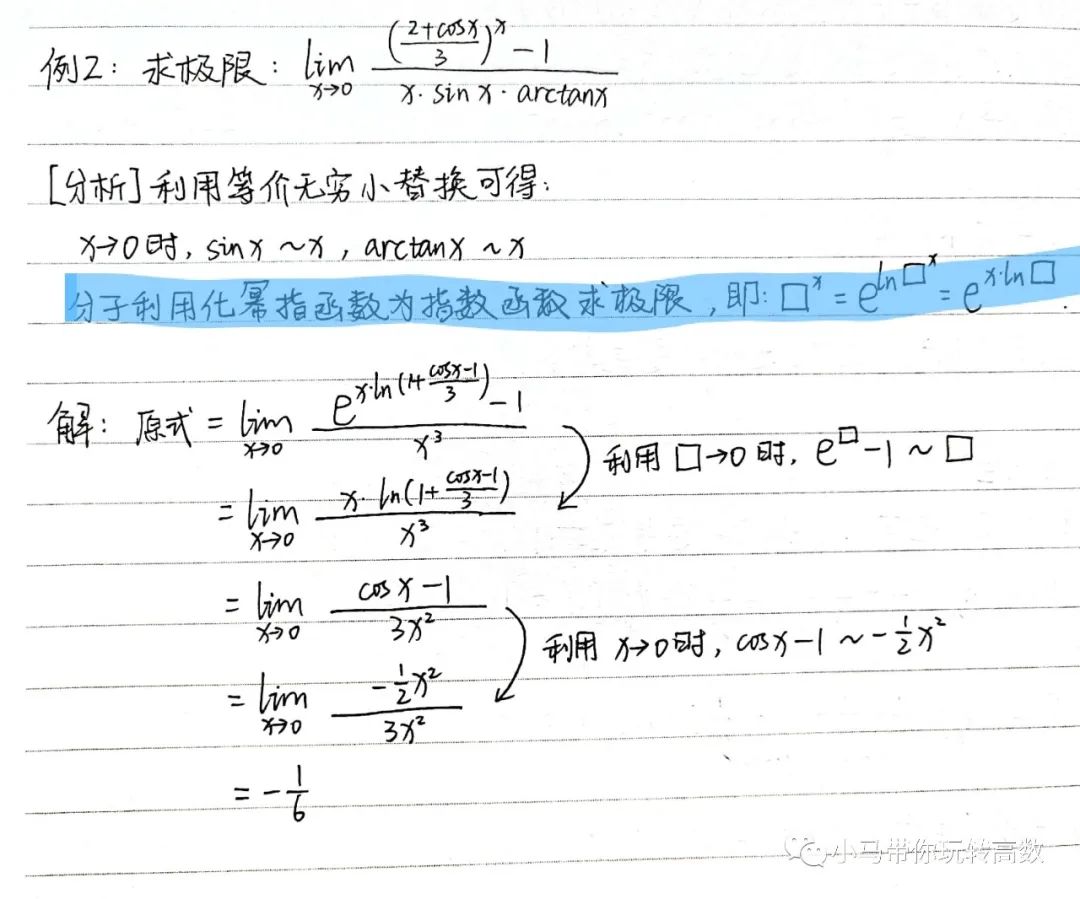 例2: 求极限: lim_{x→0} ((2+cosx)/3)^x - 1 / x·sinx·arctanx
[分析] 利用等价无穷小替换可得:
x→0时, sinx ~ x, arctanx ~ x
分子利用化幂指函数为指数函数求极限, 即: □^x = e^{ln□^x} = e^{x·ln□}.
解: 原式 = lim_{x→0} (e^{x·ln(1+(cosx-1)/3)} - 1) / x³
利用 □→0时, e^□ - 1 ~ □
= lim_{x→0} x·ln(1+(cosx-1)/3) / x³
= lim_{x→0} (cosx-1) / 3x²
利用 x→0时, cosx-1 ~ -1/2 x²
= lim_{x→0} (-1/2 x²) / 3x²
= -1/6
小马带你玩转高数